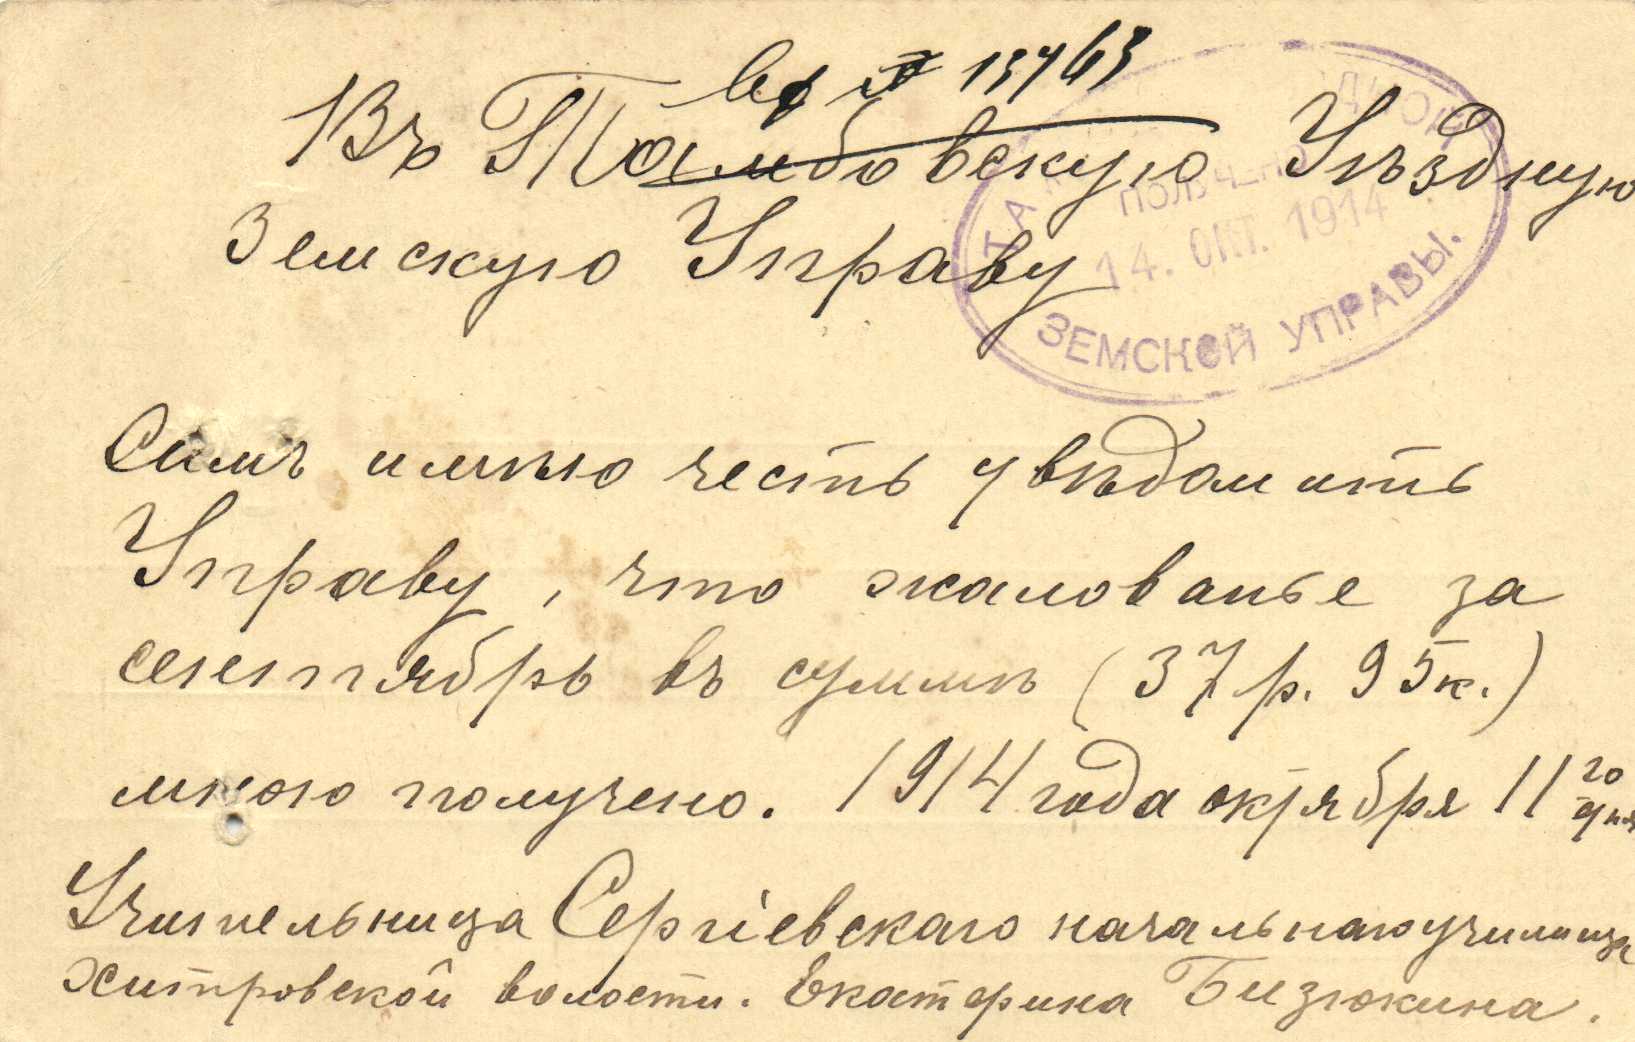 13763
Въ Тамбовскую Уѣздную
Земскую Управу
ПОЛУЧЕНО
14. ОКТ. 1914
ЗЕМСКОЙ УПРАВЫ.
Симъ имѣю честь увѣдомить
Управу, что жалованье за
сентябрь въ суммѣ (37 р. 95 к.)
мною получено. 1914 года октября 11го дня
Учительница Сергіевскаго начальнаго училища
Хитровской волости. Екатерина Бизюкина.